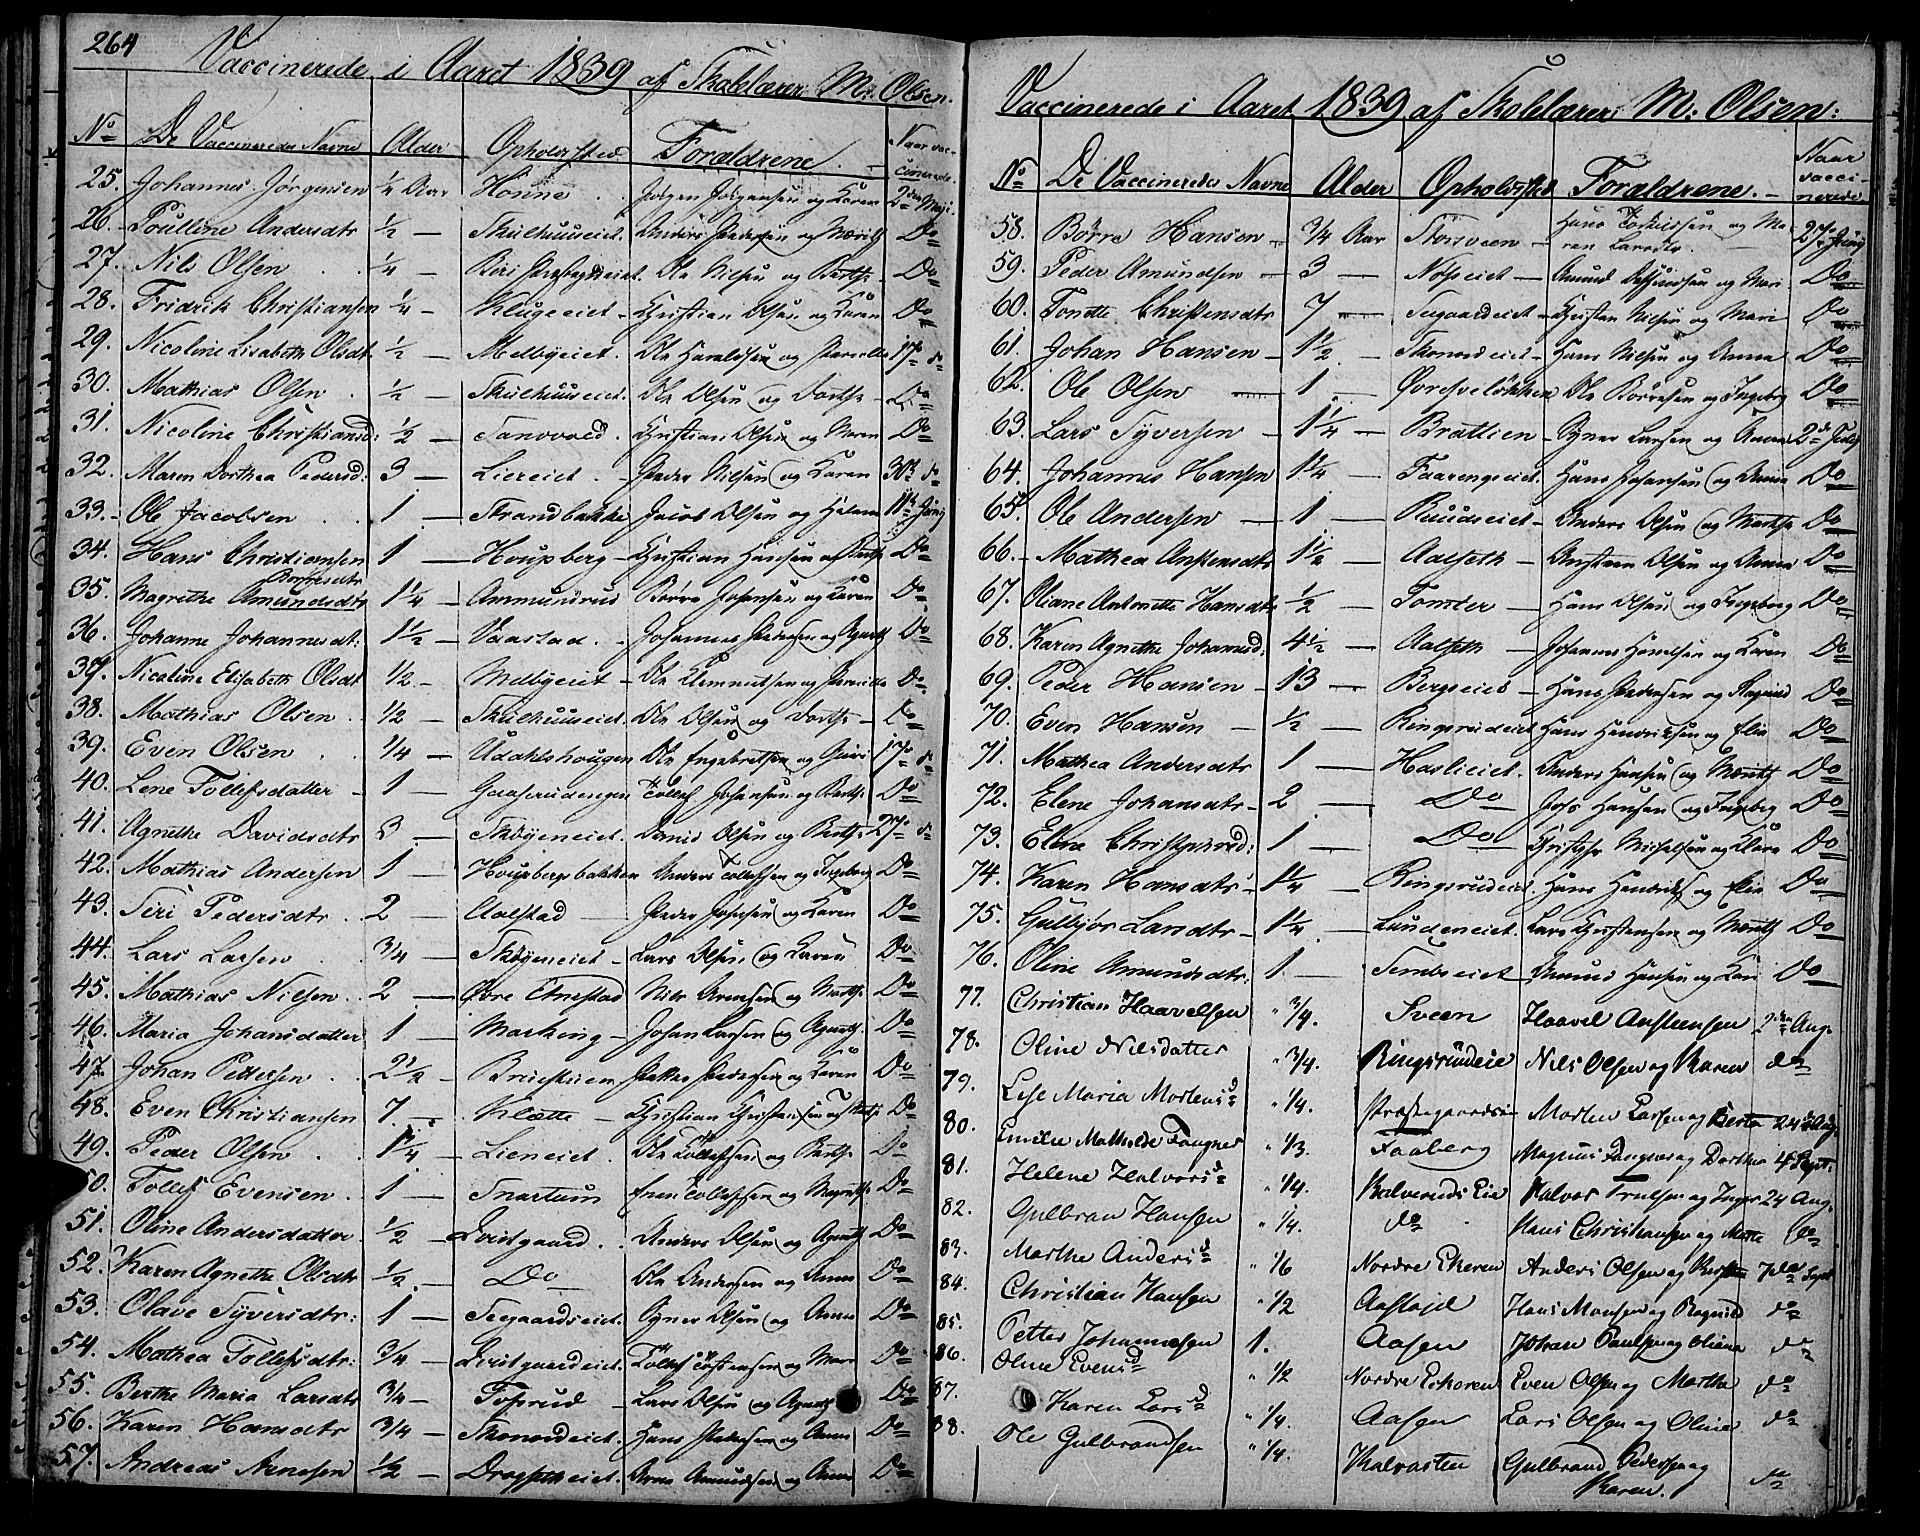 264
Vaccinerede i Aaret 1839 af Skolelærer M: Olsen.
No De Vaccineredes Navne Alder Opholdssted Forældrene. Naar vaccinerede.
25. Johannes Jørgensen 1/4 Aar Honne Jørgen Jørgensen og Karen 2den Maji
26. Pouline Andersdtr 1/2 Skulhuuseiet. Anders Pedersen og Marith Do
27. Nils Olsen 1/4 Ole Nilsen og Berthe Do
28. Fridrik Christiansen 1/4 Klugeeiet Christian Olsen og Karen Do
29. Nicoline Lisabeth Olsdt 1/2 Melbyeiet Ole Haraldsen og Pernille 17de d
30. Mathias Olsen 1/2 Skulhuuseiet. Ole Olsen og Dorthe Do
31. Nicoline Christiansd: 1/2 Sandvold. Christian Olsen og Maren Do
32. Maren Dorthea Pedersd: 3 Liereiet Peder Nilsen og Karen 30te d
33. Ole Jacobsen 1 Strandbakke Jacob Olsen og Helene 11te Junij
34. Hans Christiansen 1 Houpsberg Christian Hansen og Berthe Do
35. Magrethe Amundsdtr Børresdtr 1 1/4 Ammundrud Børre Johansen og Karen Do
36. Johanne Johannesdt: 1 1/2 Vaastad. Johannes Pedersen og Agneth Do
37. Nicoline Elisabeth Olsdt 1/2 Melbyeiet Ole Klemmetsen og Pernille Do
38. Mathias Olsen 1/2 Skulhuuseiet. Ole Olsen og Dorthe Do
39. Even Olsen 1/4 Udahlshougen Ole Engebretsen og Guri 17de d
40. Lene Tollefsdatter 1 Gaaserudengen Tollef Johansen og Berthe Do
41. Agnethe Davidsdtr 3 Skøyeneiet. David Olsen og Berthe 27de d
42. Mathias Andersen 1 Houpsbergsbakken Anders Tollefsen og Ingeborg Do
43. Siri Pedersdtr 2 Aalstad Peder Johansen og Karen Do
44. Lars Larsen 3/4 Skøyeneiet Lars Olsen og Karen Do
45. Mathias Nielsen 2 Øvre Elnestad Nils Arnesen og Marthe Do
46. Maria Johansdatter 1 Marking Johan Larsen og Agneth Do
47. Johan Pettersen 2 1/2 Petter Pedersen og Karen Do
48. Even Christiansen 7 Klætte Christian Christiansen og Do
49. Peder Olsen 1 1/4 Lieneiet. Ole Tollefsen og Berthe Do
50. Tollef Evensen 1 Snartum Even Tollefsen og Magrethe Do
51. Oline Andersdatter 1/2 Qvistgaard. Anders Olsen og Agneth Do
52. Karen Agnethe Olsdtr 1/2 Do Ole Andersen og Anne Do
53. Olave Syversdtr: 1 Seegaardseiet. Syver Olsen og Anne Do
54. Mathea Tollefsdtr: 3/4 Qvistgaardeiet. Tollef Tostensen og Mari Do
55. Berthe Maria Larsdtr 3/4 Fosrud Lars Olsen og Agneth Do
56. Karen Hansdtr 3/4 Skonnordeiet. Hans Pedersen og Anne Do
57. Andreas Arnesen 1/2 Dragsetheiet. Arne Amundsen og Anne Do
Vaccinerede i Aaret 1839 af Skolelærer M: Olsen:
No De Vaccineredes Navne Alder Opholdssted Forældrene. Naar vaccinerede
58. Børre Hansen 3/4 Aar Storsveen Hans Torkildsen og Maren Larsdtr 29de Junij
59. Peder Amundsen 3 Nøsseiet Amund og Mari Do
60. Tonette Christensdtr 7 Seegaardeiet Christen Nilsen og Mari Do
61. Johan Hansen 1 1/2 Skonnordeiet Hans Nilsen og Anna Do
62. Ole Olsen 1 Øvresveløkken Ole Børresen og Ingeborg Do
63. Lars Syversen 1 1/4 Brattien Syver Larsen og Anne 2d July
64. Johannes Hansen 1 1/4 Faarengeeiet Hans Johansen og Anne Do
65. Ole Andersen 1 Ruudseiet Anders Olsen og Marthe Do
66. Mathea Anstensdtr 1 1/2 Aalseth Austeen Olsen og Anne Do
67. Oliane Antonette Hansdtr 1/2 Tomter Hans Olsen og Ingeborg Do
68. Karen Agnethe Johannsd: 4 1/2 Aalseth Johannes Hansen og Karen Do
69. Peder Hansen 13 Bergseiet Hans Pedersen og Ragnild Do
70. Even Hansen 1/2 Ringsrudeiet Hans Hendriksen og Elie Do
71. Mathea Andersdtr 1 Haslieiet. Anders Hansen og Marith Do
72. Elene Johansdtr 2 Do Johs Hansen og Ingeborg Do
73. Eline Christophersd: 1 Do Christopher Michelsen og Klara Do
74. Karen Hansdtr 1 1/4 Ringsrudeiet Hans Hendriks og Elie Do
75. Gulbjør Larsdtr 1 1/4 Lundeneiet. Lars Christensen og Marith Do
76. Oline Amundsdtr 1 Sembseiet Amund Hansen og Kari Do
77. Christian Haavelsen " 3/4. Sveen Haavel Anstensen 2den Aug.
78. Oline Nilsdatter " 3/4. Ringsrudeie Nils Olsen og Karen do
79. Lise Maria Mortensd " 1/4. Præstegaards Morten Larsen og Berta 24de Aug.
80. Emilie Mathilde Fougner " 1/3. Faaberg Magnus Fougner og Dorthea 4 Sept.
81. Helene Halvorsd " 1/4. Kalverudseie Halvor Truelsen og Inger 24 Aug.
82. Gulbran Hansen " 1/4. do Hans Christiansen og Mette do
83. Marthe Andersd " 1/6 Nordre Ekeren Anders Olsen og Kersten 7de Sept
84. Christian Hansen " 1/2 Aastøjel Hans Monsen og Ragnild do
85. Petter Johannesen 1. Aasen Johan Paulsen og Oliane do
86. Oline Evensd " 1/2 Nordre Eckeren Even Olsen og Martha do
87. Karen Larsd " 1/4. Aasen Lars Olsen og Oline do
88. Ole Gulbrandsen " 1/4. Gulbrand Pedersen og Karen. do